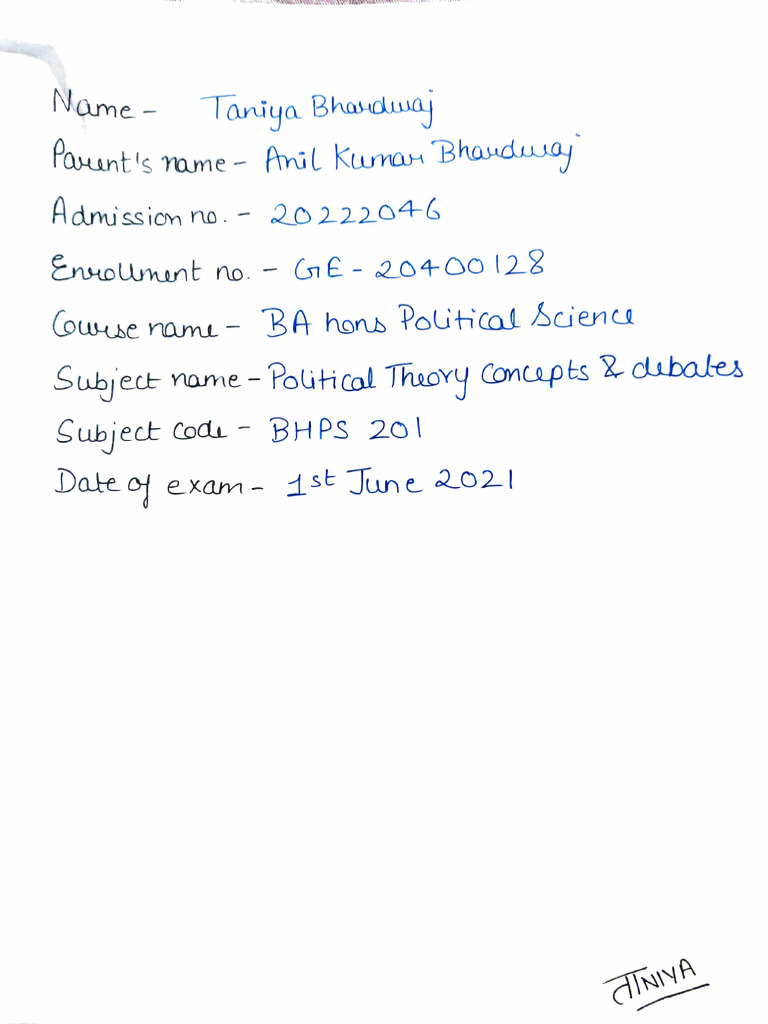 Name - Taniya Bhardwaj
Parent's name - Anil Kumar Bhardwaj
Admission no. - 20222046
Enrollment no. - GE - 20400128
Course name - BA hons Political Science
Subject name - Political Theory Concepts & debates
Subject code - BHPS 201
Date of exam - 1st June 2021
ताNIYA